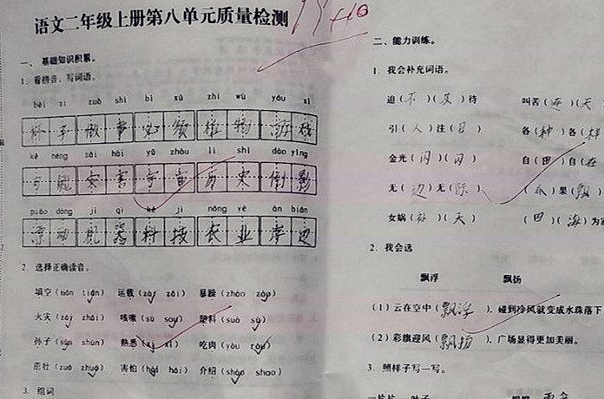 语文二年级上册第八单元质量检测
一、基础知识积累。
1. 看拼音，写词语。
bèi zi zuò shì bì xū zhí wù yóu xì
杯子 做事 必须 植物 游戏
kě néng zāi hài yǔ zhòu lì shǐ dào yǐng
可能 灾害 宇宙 历史 倒影
piāo dàng jī qì kē jì nóng yè àn biān
飘动 机器 科技 农业 岸边
2. 选择正确读音。
填空（tián tiàn） 运载（zài zǎi） 暴躁（zhào zào）
火灾（zāi zhāi） 咳嗽（sù sou） 塑料（suò sù）
孙子（sūn shūn） 熟悉（xī xi） 吃肉（yòu ròu）
茁壮（zuó zhuó） 害怕（hài hái） 介绍（shào shao）
3. 组词
二、能力训练。
1. 我会补充词语。
迫（不）（及）待 叫苦（连）（天）
引（人）注（目） 各（种）各（样）
金光（闪）（闪） 自（由）自（在）
无（边）无（际） （瓜）果（飘）
女娲（补）（天） （四）（海）为
2. 我会选
飘浮 飘扬
（1）云在空中（飘浮），碰到冷风就变成水珠落下
（2）彩旗迎风（飘扬），广场显得更加美丽。
3. 照样子写一写。